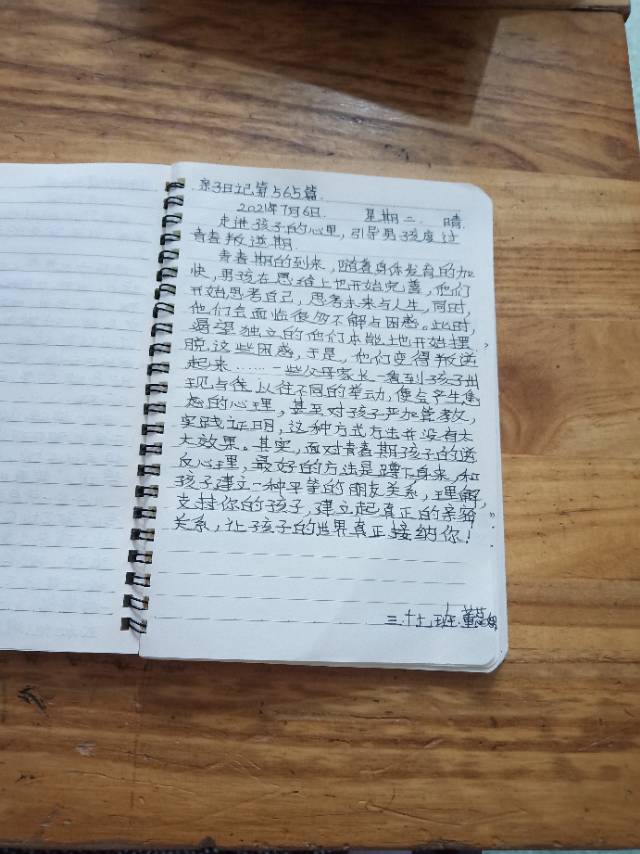 亲子日记第565篇
2021年7月6日 星期二 晴
走进孩子的心里，引导男孩度过
青春叛逆期
青春期的到来，随着身体发育的加
快，男孩在思维上也开始完善，他们
开始思考自己，思考未来与人生，同时，
他们会面临很多不解与困惑。此时，
渴望独立的他们本能地开始摆
脱这些困惑，于是，他们变得叛逆
起来……一些父母家长一看到孩子出
现与往以往不同的举动，便会产生焦
虑的心理，甚至对孩子严加管教，
实践证明，这种方式方法并没有太
大效果。其实，面对青春期孩子的逆
反心理，最好的方法是蹲下身来，和
孩子建立一种平等的朋友关系，理解，
支持你的孩子，建立起真正的亲密
关系，让孩子的世界真正接纳你！
三.十七班